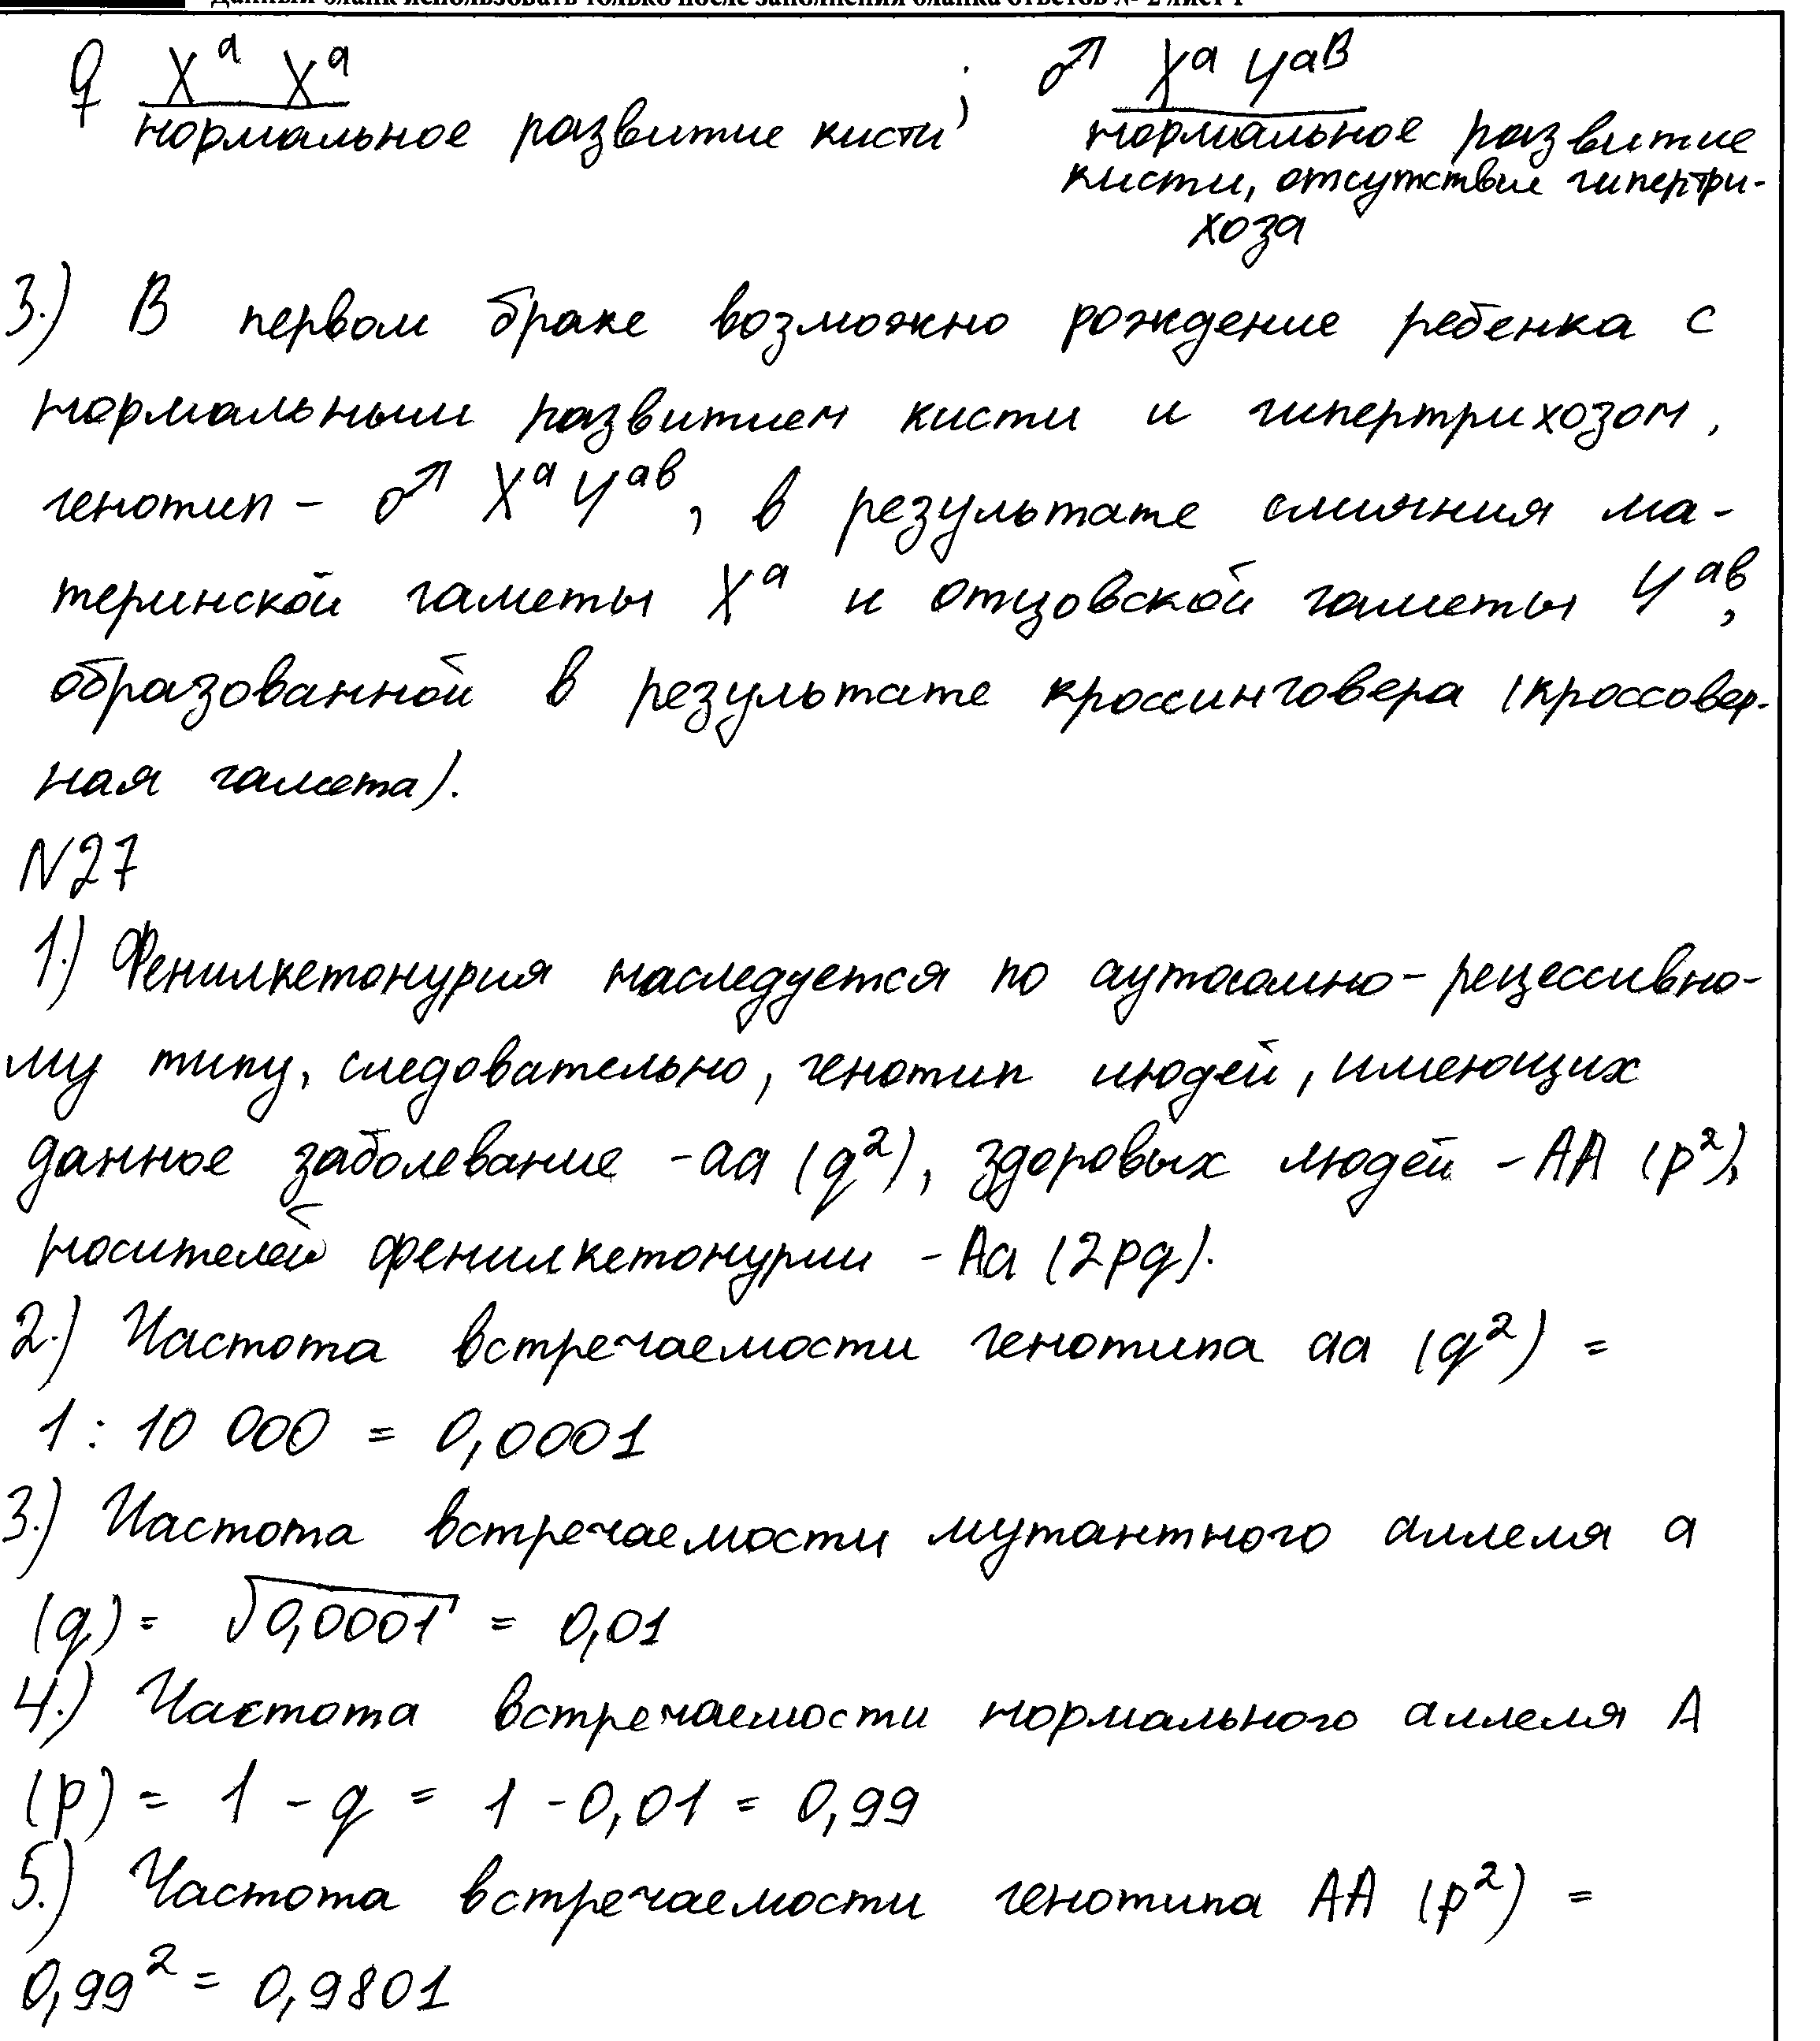 Данный бланк использовать только после заполнения бланка ответов № 2 лист 1
♀ Xᵃ Xᵃ ; ♂ Xᵃ Yᵃᴮ
нормальное развитие кисти нормальное развитие
кисти, отсутствие гипертри-
хоза
3.) В первом браке возможно рождение ребенка с
нормальным развитием кисти и гипертрихозом,
генотип – ♂ Xᵃ Yᵃᵇ, в результате слияния ма-
теринской гаметы Xᵃ и отцовской гаметы Yᵃᵇ,
образованной в результате кроссинговера (кроссовер-
ная гамета).
N27
1.) Фенилкетонурия наследуется по аутосомно-рецессивно-
му типу, следовательно, генотип людей, имеющих
данное заболевание - aa (q²), здоровых людей - AA (p²),
носителей фенилкетонурии - Aa (2pq).
2.) Частота встречаемости генотипа aa (q²) =
1 : 10 000 = 0,0001
3.) Частота встречаемости мутантного аллеля a
(q) = √0,0001 = 0,01
4.) Частота встречаемости нормального аллеля A
(p) = 1 - q = 1 - 0,01 = 0,99
5.) Частота встречаемости генотипа AA (p²) =
0,99² = 0,9801